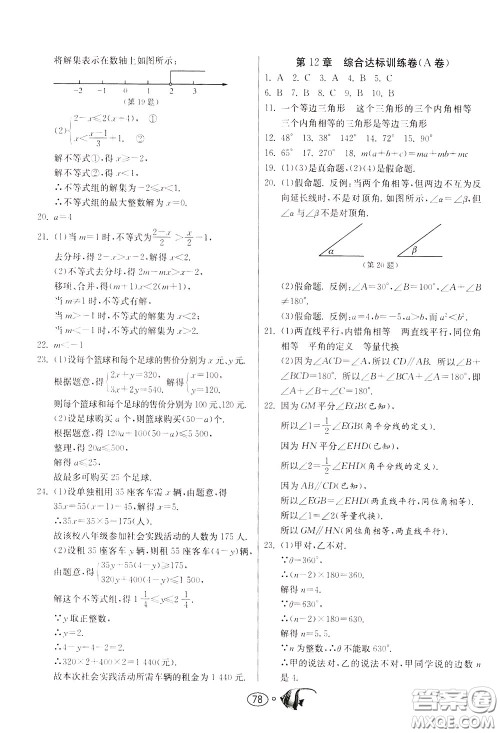 将解集表示在数轴上如图所示：
-2 -1 0 1 2 3
(第19题)
(2){-x-2≤2(x+4)， ①
x<(x-1)/3+1. ②
解不等式①，得x≥-2.
解不等式②，得x<1.
∴不等式组的解集为-2≤x<1.
∴不等式组的最大整数解为x=0.
20. a=4
21. (1)当m=1时，不等式为(2-x)/2>x/2-1，
去分母，得2-x>x-2，解得x<2.
(2)不等式去分母，得2m-mx>x-2，
移项、合并，得(m+1)x<2(m+1)，
当m≠-1时，不等式有解.
当m>-1时，不等式的解集为x<2；
当m<-1时，不等式的解集为x>2.
22. m<-1
23. (1)设每个篮球和每个足球的售价分别为x元、y元.
根据题意，得{2x+y=320， 3x+2y=540. 解得{x=100， y=120.
则每个篮球和每个足球的售价分别为100元、120元.
(2)设足球购买a个，则篮球购买(50-a)个.
根据题意，得120a+100(50-a)≤5 500，
整理，得20a≤500，
解得a≤25，
故最多可购买25个足球.
24. (1)设单独租用35座客车需x辆，由题意，得
35x=55(x-1)-45，解得x=5.
∴35x=35×5=175(人).
故该校八年级参加社会实践活动的人数为175人.
(2)设租35座客车y辆，则55座客车(4-y)辆，
由题意，得{35y+55(4-y)≥175，
320y+400(4-y)≤1 500，
解这个不等式组，得1 1/4≤y≤2 1/4.
∵y取正整数，
∴y=2.
∴4-y=4-2=2.
∴320×2+400×2=1 440(元).
故本次社会实践活动所需车辆的租金为1 440元.
第12章 综合达标训练卷(A卷)
1. A 2. C 3. A 4. B 5. C
6. B 7. B 8. A 9. D 10. C
11. 一个等边三角形 这个三角形的三个内角相等
三个内角相等的三角形是等边三角形
12. 48° 13. 38° 14. 72° 15. 90°
16. 65° 17. 270° 18. m(a+b+c)=ma+mb+mc
19. (1)(3)是真命题，(2)(4)是假命题.
20. (1)假命题. 反例：当两个角相等，但两边不互为反
向延长线时，不是对顶角. 如图所示，∠α=∠β，但
∠α与∠β不是对顶角.
α β
(第20题)
(2)假命题. 反例：∠A=30°，∠B=80°，∠A+∠B
≠180°.
(3)假命题. 反例：a=4，b=-5，a>b，而a²<b².
21. (1)两直线平行，内错角相等 两直线平行，同位角
相等 平角的定义 等量代换
(2)因为∠ACD=∠A，所以CD∥AB. 所以∠B+
∠BCD=180°. 所以∠B+∠BCA+∠A=180°，即
∠A+∠B+∠ACB=180°.
22. 因为GM平分∠EGB(已知)，
所以∠1=1/2∠EGB(角平分线的定义).
因为HN平分∠EHD(已知)，
所以∠2=1/2∠EHD(角平分线的定义).
因为AB∥CD(已知)，
所以∠EGB=∠EHD(两直线平行，同位角相等).
所以∠1=∠2(等量代换).
所以GM∥HN(同位角相等，两直线平行).
23. (1)甲对，乙不对.
∵θ=360°，
∴(n-2)×180=360.
解得n=4.
∵θ=630°，
∴(n-2)×180=630.
解得n=5.5.
∵n为整数，∴θ不能取630°.
∴甲的说法对，乙的说法不对，甲同学说的边数n
是4.
78
答案圈
MXQE.COM